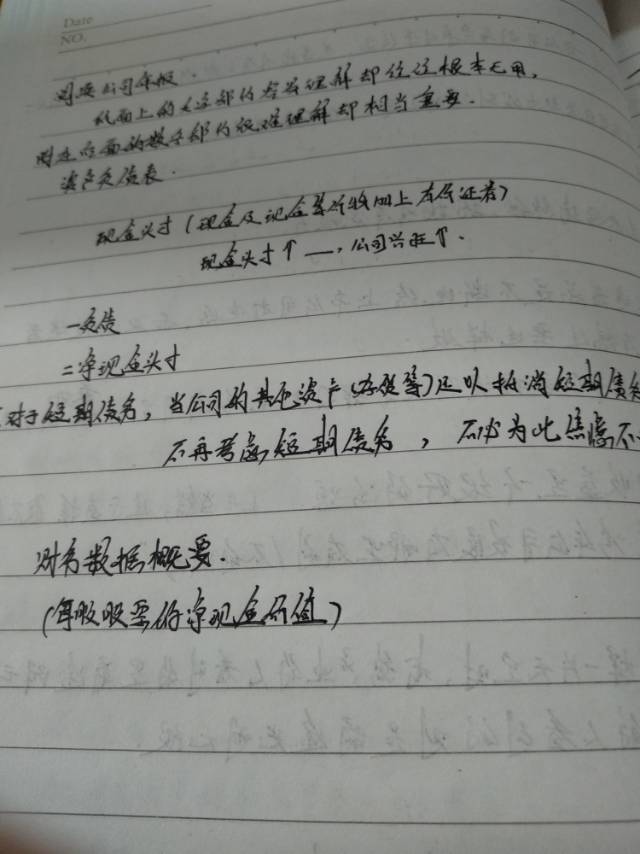 Date
NO.
阅读公司年报.
纸面上的文字部分容易理解却往往根本无用,
附在后面的数字部分很难理解却相当重要.
资产负债表.
现金头寸(现金及现金等价物加上有价证券)
现金头寸↑ —, 公司兴旺↑.
-负债
=净现金头寸
对于短期债务, 当公司的其他资产(存货等)足以抵消短期债务
不再考虑短期债务, 不必为此焦虑不
财务数据概要.
(每股股票的净现金价值)